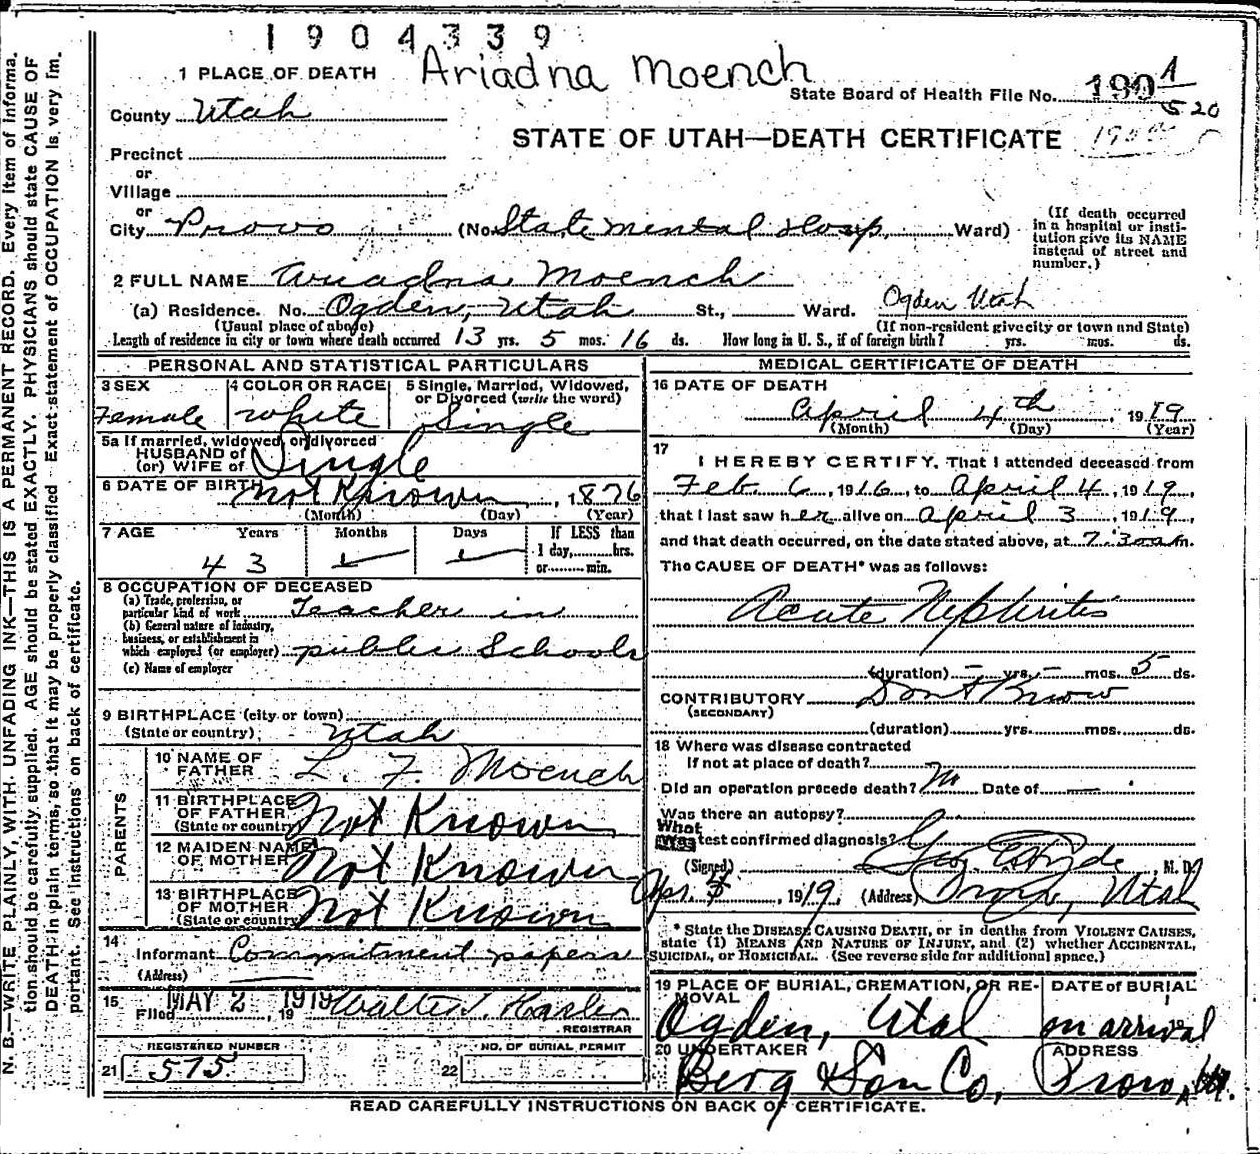 1904339
Ariadna Moench
1 PLACE OF DEATH
State Board of Health File No. 1901
520
County Utah
STATE OF UTAH—DEATH CERTIFICATE
Precinct
or
Village
or
City Provo (No. State Mental Hosp. Ward)
(If death occurred in a hospital or insti-
tution give its NAME
instead of street and
number.)
2 FULL NAME Ariadna Moench
(a) Residence. No. Ogden, Utah St., Ward. Ogden Utah
(Usual place of abode) (If non-resident give city or town and State)
Length of residence in city or town where death occurred 13 yrs. 5 mos. 16 ds. How long in U. S., if of foreign birth? yrs. mos. ds.
PERSONAL AND STATISTICAL PARTICULARS
3 SEX
Female
4 COLOR OR RACE
White
5 Single, Married, Widowed,
or Divorced (write the word)
Single
5a If married, widowed, or divorced
HUSBAND of
(or) WIFE of Single
6 DATE OF BIRTH Not Known, 1876
(Month) (Day) (Year)
7 AGE Years Months Days If LESS than
1 day,......hrs.
or......min.
43
8 OCCUPATION OF DECEASED
(a) Trade, profession, or
particular kind of work Teacher in
(b) General nature of industry,
business, or establishment in
which employed (or employer) public Schools
(c) Name of employer
9 BIRTHPLACE (city or town)
(State or country) Utah
PARENTS
10 NAME OF
FATHER L. F. Moench
11 BIRTHPLACE
OF FATHER
(State or country) Not Known
12 MAIDEN NAME
OF MOTHER Not Known
13 BIRTHPLACE
OF MOTHER
(State or country) Not Known
14
Informant Commitment papers
(Address)
15
Filed MAY 2 1919, 19 Walter
REGISTRAR
REGISTERED NUMBER
21 575
NO. OF BURIAL PERMIT
22
MEDICAL CERTIFICATE OF DEATH
16 DATE OF DEATH
April 4th, 1919
(Month) (Day) (Year)
17
I HEREBY CERTIFY, That I attended deceased from
Feb. 6, 1916, to April 4, 1919,
that I last saw her alive on April 3, 1919,
and that death occurred, on the date stated above, at 7:30 am.
The CAUSE OF DEATH* was as follows:
Acute Nephritis
(duration) – yrs. – mos. 5 ds.
CONTRIBUTORY Don't Know
(SECONDARY)
(duration) yrs. mos. ds.
18 Where was disease contracted
If not at place of death?
Did an operation precede death? No Date of —
Was there an autopsy?
What test confirmed diagnosis?
(Signed) Geo. E. Hyde, M. D.
Apr. , 1919, (Address) Provo, Utah
* State the DISEASE CAUSING DEATH, or in deaths from VIOLENT CAUSES,
state (1) MEANS AND NATURE OF INJURY, and (2) whether ACCIDENTAL,
SUICIDAL, or HOMICIDAL. (See reverse side for additional space.)
19 PLACE OF BURIAL, CREMATION, OR RE-
MOVAL
Ogden, Utah
DATE of BURIAL
on arrival
20 UNDERTAKER
Berg & Son Co,
ADDRESS
Provo, Ut.
READ CAREFULLY INSTRUCTIONS ON BACK OF CERTIFICATE.
N. B.—WRITE PLAINLY, WITH UNFADING INK—THIS IS A PERMANENT RECORD. Every item of informa-
tion should be carefully supplied. AGE should be stated EXACTLY. PHYSICIANS should state CAUSE OF
DEATH in plain terms, so that it may be properly classified. Exact statement of OCCUPATION is very im-
portant. See instructions on back of certificate.